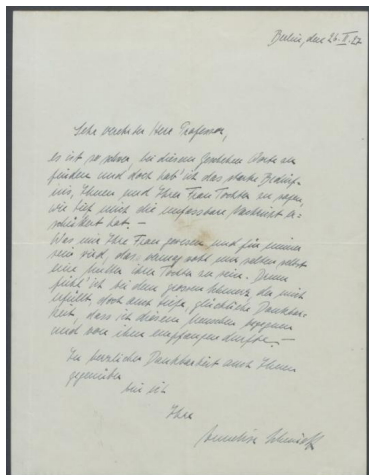 Berlin, den 26. V. 27
Sehr verehrter Herr Professor,
es ist so schwer, bei diesem Geschehen Worte zu
finden und doch hab' ich das starke Bedürf-
nis, Ihnen und Ihrer Frau Tochter zu sagen,
wie tief mich die unfassbare Nachricht er-
schüttert hat. –
Was mir Ihre Frau gewesen und für immer
sein wird, das
eine Ihrer zu sein. Denn
fühl' ich bei dem grossen Schmerz, der mich
erfüllt, doch auch tiefe glückliche Dankbar-
keit, dass ich diesem Menschen begegnen
und von ihm empfangen durfte. –
In herzlicher Dankbarkeit auch Ihnen
gegenüber
bin ich
Ihre
Annelise